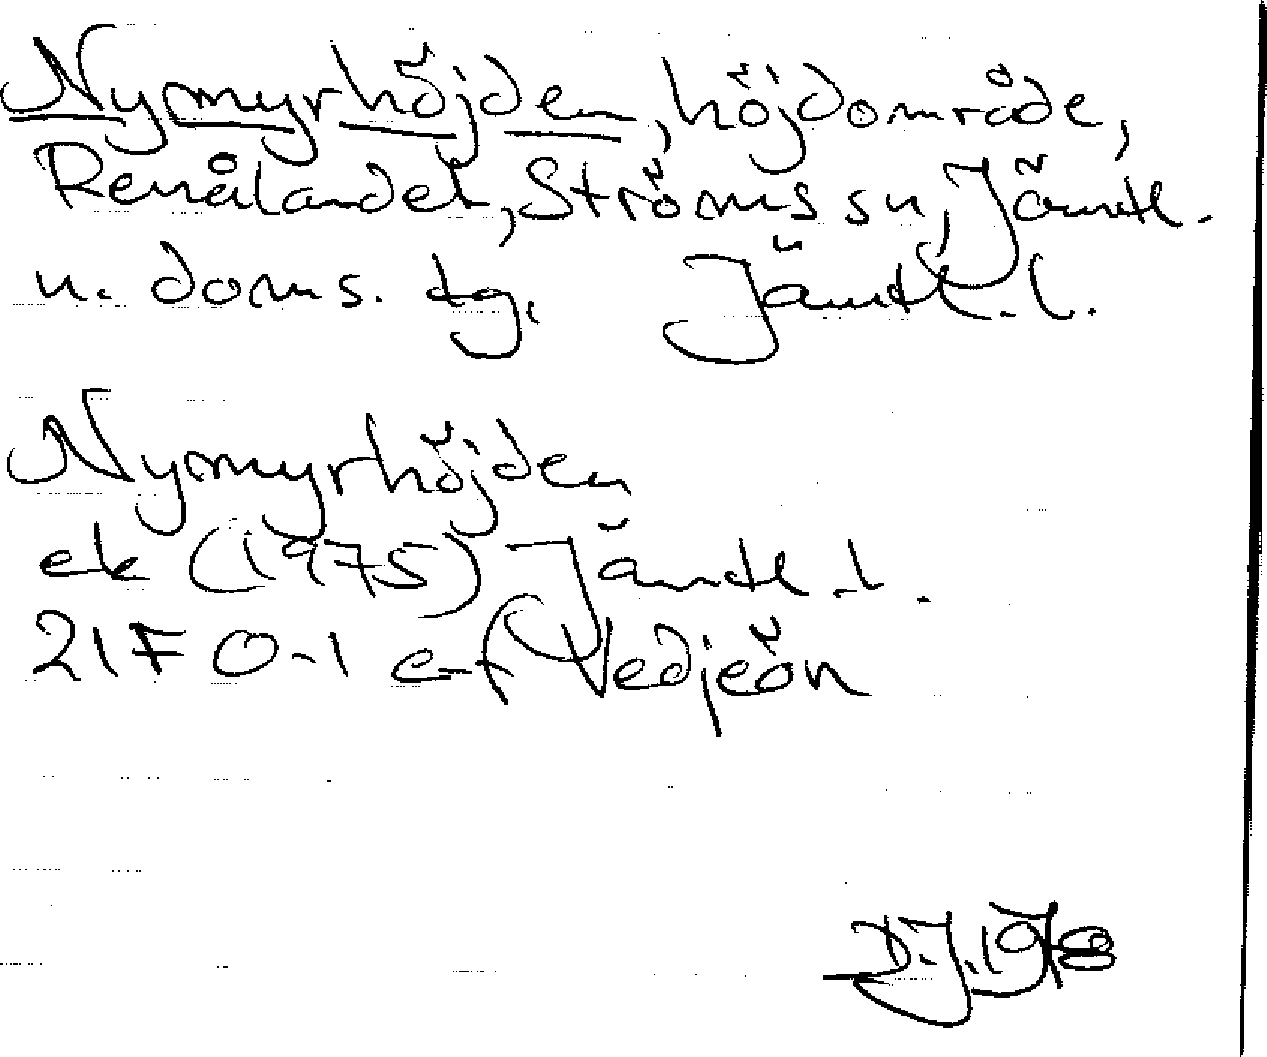 Nymyrhöjden, höjdområde,
Renålandet, Ströms sn, Jämtl.
n. doms. tg. Jämtl. l.
Nymyrhöjden
ek (1975) Jämtl. l.
21F 0-1 e-f Vedjeön
D.J. 1978